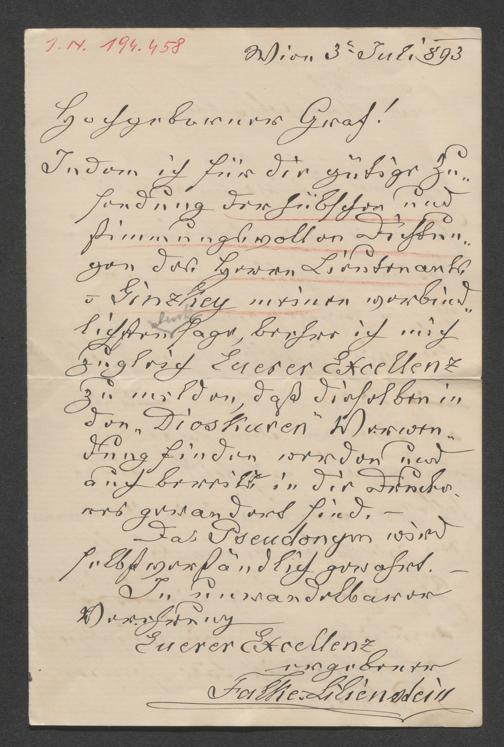 I. N. 194.458
Wien 3ᵗ Juli 893
Hochgeborner Graf!
Indem ich für die gütige Zu-
sendung der hübschen und
stimmungsvollen Dichtun-
gen des Herrn Lieutenants
v Ginzkey meinen verbind-
Dank
lichsten sage, beehre ich mich
zugleich Euerer Excellenz
zu melden, daß dieselben in
den „Dioskuren" Verwen-
dung finden werden und
auch bereits in die Drucke-
rei gewandert sind. –
Das Pseudonym wird
selbstverständlich gewahrt. –
In unwandelbarer
Verehrung
Euerer Excellenz
ergebener
Falke-Lilienstein